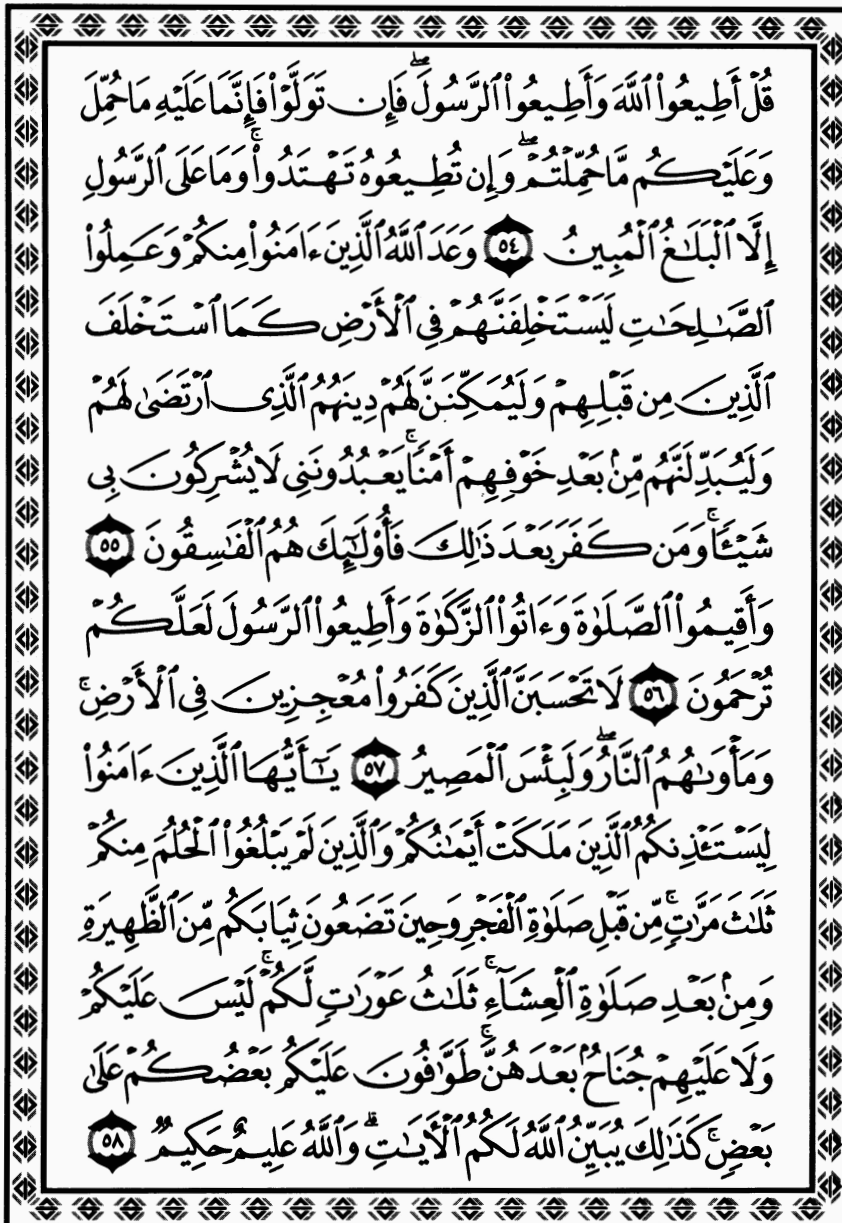 قُلۡ أَطِيعُواْ ٱللَّهَ وَأَطِيعُواْ ٱلرَّسُولَۖ فَإِن تَوَلَّوۡاْ فَإِنَّمَا عَلَيۡهِ مَا حُمِّلَ
وَعَلَيۡكُم مَّا حُمِّلۡتُمۡۖ وَإِن تُطِيعُوهُ تَهۡتَدُواْۚ وَمَا عَلَى ٱلرَّسُولِ
إِلَّا ٱلۡبَلَٰغُ ٱلۡمُبِينُ ٥٤ وَعَدَ ٱللَّهُ ٱلَّذِينَ ءَامَنُواْ مِنكُمۡ وَعَمِلُواْ
ٱلصَّٰلِحَٰتِ لَيَسۡتَخۡلِفَنَّهُمۡ فِي ٱلۡأَرۡضِ كَمَا ٱسۡتَخۡلَفَ
ٱلَّذِينَ مِن قَبۡلِهِمۡ وَلَيُمَكِّنَنَّ لَهُمۡ دِينَهُمُ ٱلَّذِي ٱرۡتَضَىٰ لَهُمۡ
وَلَيُبَدِّلَنَّهُم مِّنۢ بَعۡدِ خَوۡفِهِمۡ أَمۡنٗاۚ يَعۡبُدُونَنِي لَا يُشۡرِكُونَ بِي
شَيۡـٔٗاۚ وَمَن كَفَرَ بَعۡدَ ذَٰلِكَ فَأُوْلَٰٓئِكَ هُمُ ٱلۡفَٰسِقُونَ ٥٥
وَأَقِيمُواْ ٱلصَّلَوٰةَ وَءَاتُواْ ٱلزَّكَوٰةَ وَأَطِيعُواْ ٱلرَّسُولَ لَعَلَّكُمۡ
تُرۡحَمُونَ ٥٦ لَا تَحۡسَبَنَّ ٱلَّذِينَ كَفَرُواْ مُعۡجِزِينَ فِي ٱلۡأَرۡضِۚ
وَمَأۡوَىٰهُمُ ٱلنَّارُۖ وَلَبِئۡسَ ٱلۡمَصِيرُ ٥٧ يَٰٓأَيُّهَا ٱلَّذِينَ ءَامَنُواْ
لِيَسۡتَـٔۡذِنكُمُ ٱلَّذِينَ مَلَكَتۡ أَيۡمَٰنُكُمۡ وَٱلَّذِينَ لَمۡ يَبۡلُغُواْ ٱلۡحُلُمَ مِنكُمۡ
ثَلَٰثَ مَرَّٰتٖۚ مِّن قَبۡلِ صَلَوٰةِ ٱلۡفَجۡرِ وَحِينَ تَضَعُونَ ثِيَابَكُم مِّنَ ٱلظَّهِيرَةِ
وَمِنۢ بَعۡدِ صَلَوٰةِ ٱلۡعِشَآءِۚ ثَلَٰثُ عَوۡرَٰتٖ لَّكُمۡۚ لَيۡسَ عَلَيۡكُمۡ
وَلَا عَلَيۡهِمۡ جُنَاحُۢ بَعۡدَهُنَّۚ طَوَّٰفُونَ عَلَيۡكُم بَعۡضُكُمۡ عَلَىٰ
بَعۡضٖۚ كَذَٰلِكَ يُبَيِّنُ ٱللَّهُ لَكُمُ ٱلۡأٓيَٰتِۗ وَٱللَّهُ عَلِيمٌ حَكِيمٞ ٥٨